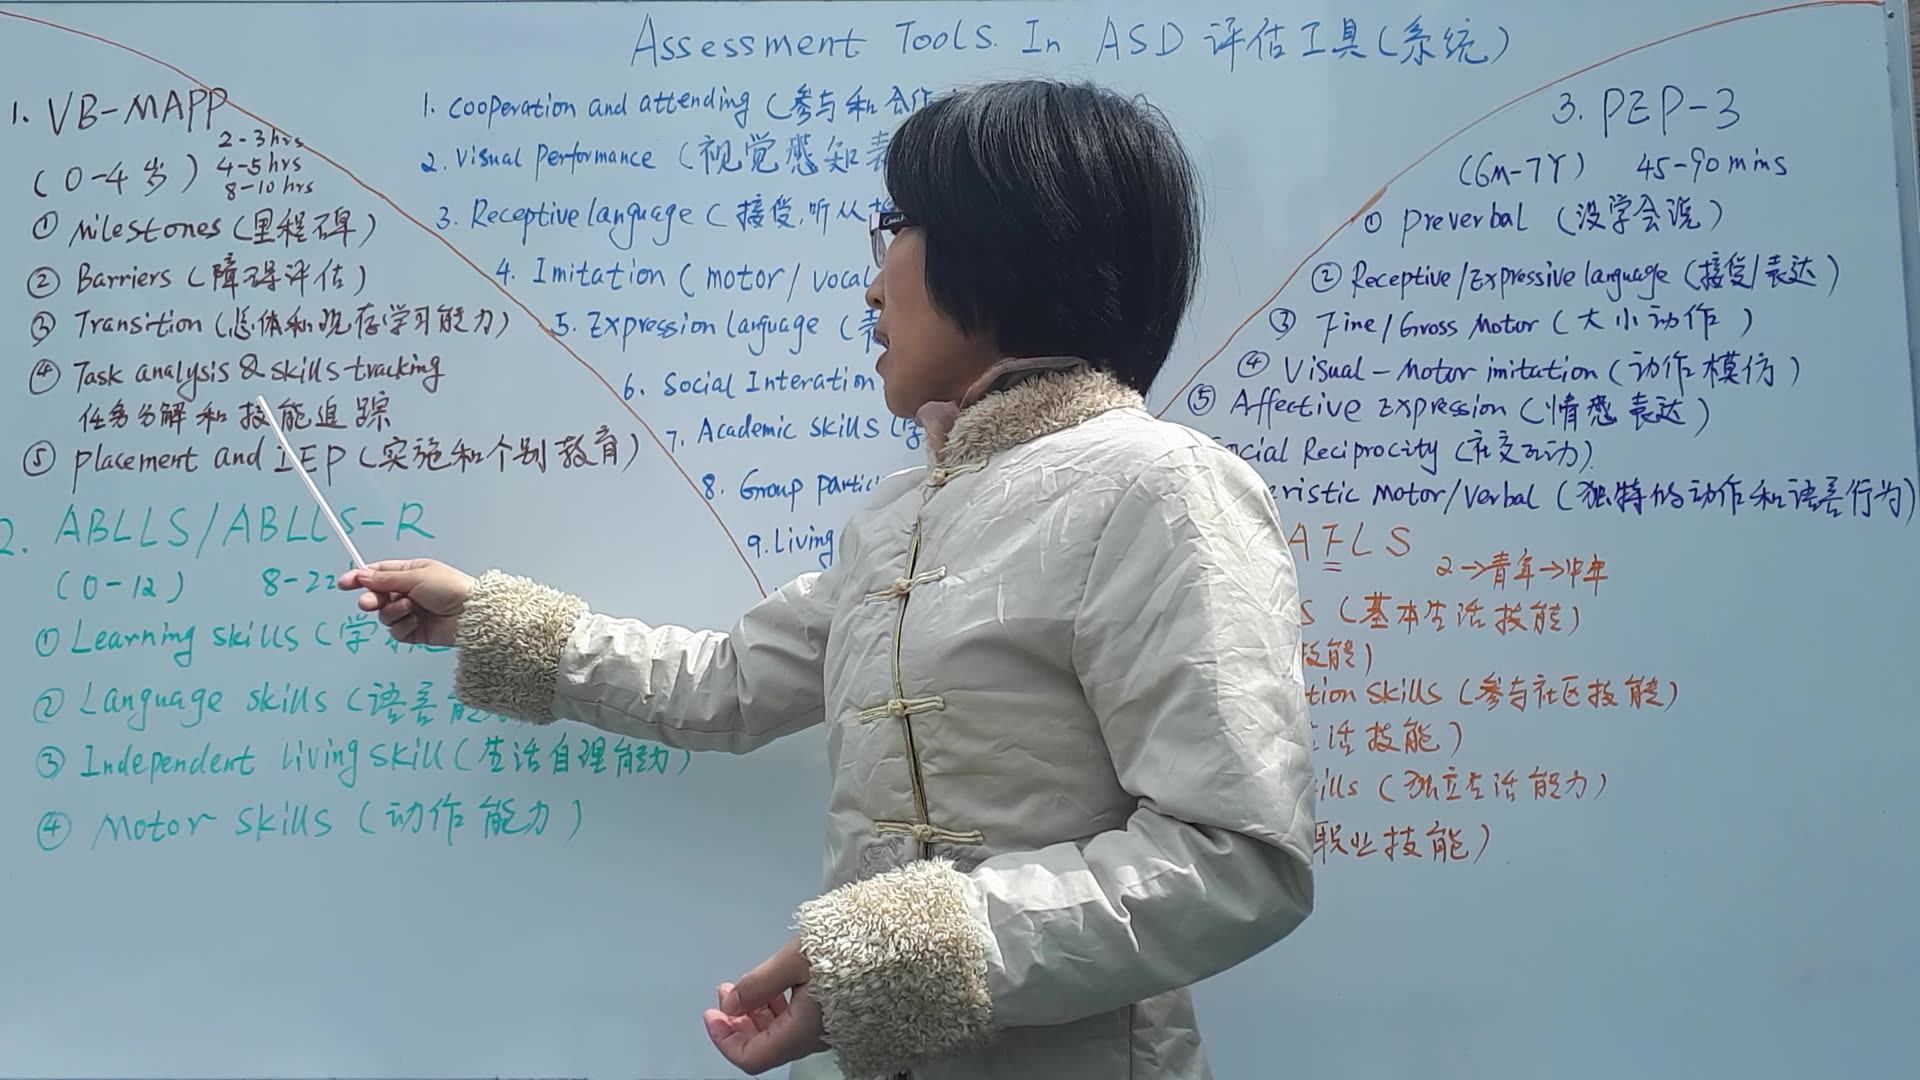 Assessment Tools In ASD 评估工具(系统)
1. VB-MAPP
2-3 hrs
(0-4岁) 4-5 hrs
8-10 hrs
① Milestones (里程碑)
② Barriers (障碍评估)
③ Transition (总体和现存学习能力)
④ Task analysis & skills tracking
任务分解和技能追踪
⑤ placement and IEP (实施和个别教育)
2. ABLLS/ABLLS-R
(0-12) 8-22
① Learning skills (学
② Language skills (语言能
③ Independent living skill (生活自理能力)
④ Motor skills (动作能力)
1. Cooperation and attending (参与和合作
2. Visual Performance (视觉感知表
3. Receptive language (接受,听从
4. Imitation (motor/vocal
5. Expression language (表
6. Social Interation
7. Academic skills (学
8. Group partici
9. Living
3. PEP-3
(6M-7Y) 45-90 mins
① preverbal (没学会说)
② Receptive/Expressive language (接受/表达)
③ Fine/Gross Motor (大小动作)
④ Visual-Motor imitation (动作模仿)
⑤ Affective Expression (情感表达)
cial Reciprocity (社交互动)
ristic Motor/Verbal (独特的动作和语言行为)
AFLS 2→青年→中年
S (基本生活技能)
技能)
tion skills (参与社区技能)
活技能)
ills (独立生活能力)
职业技能)